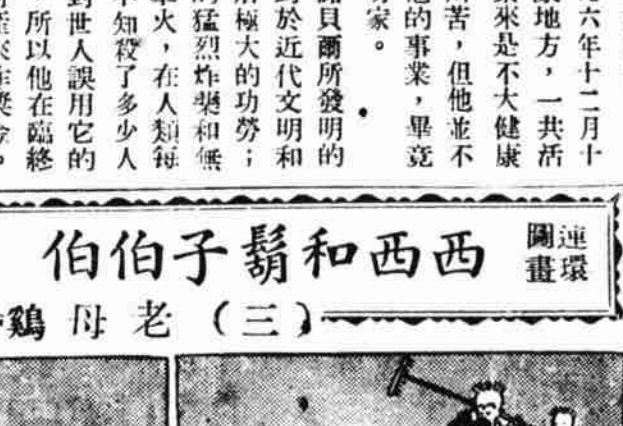 六年十二月十
地方，一共活
來是不大健康
苦，但他並不
的事業，畢竟
家。
貝爾所發明的
於近代文明和
極大的功勞；
的猛烈炸藥和無
火，在人類每
不知殺了多少人
世人誤用它的
所以他在臨終
獎金。
連環
圖畫
西西和鬍子伯伯
（三）老母鷄